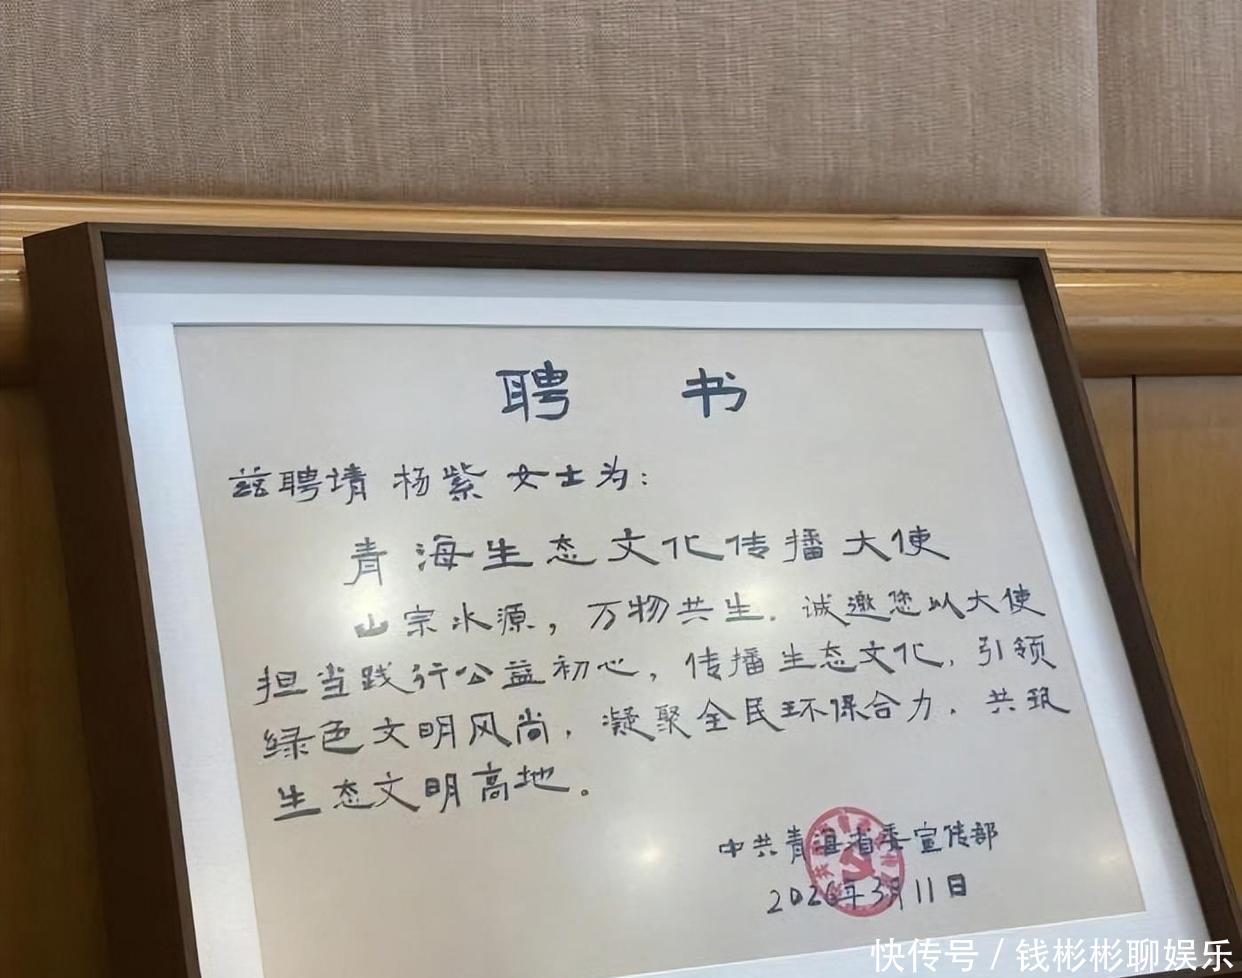 聘 书
兹聘请 杨紫 女士为：
青海生态文化传播大使
山宗水源，万物共生. 诚邀您以大使
担当践行公益初心，传播生态文化，引领
绿色文明风尚，凝聚全民环保合力，共筑
生态文明高地。
中共青海省委宣传部
2026年3月11日
快传号 / 钱彬彬聊娱乐